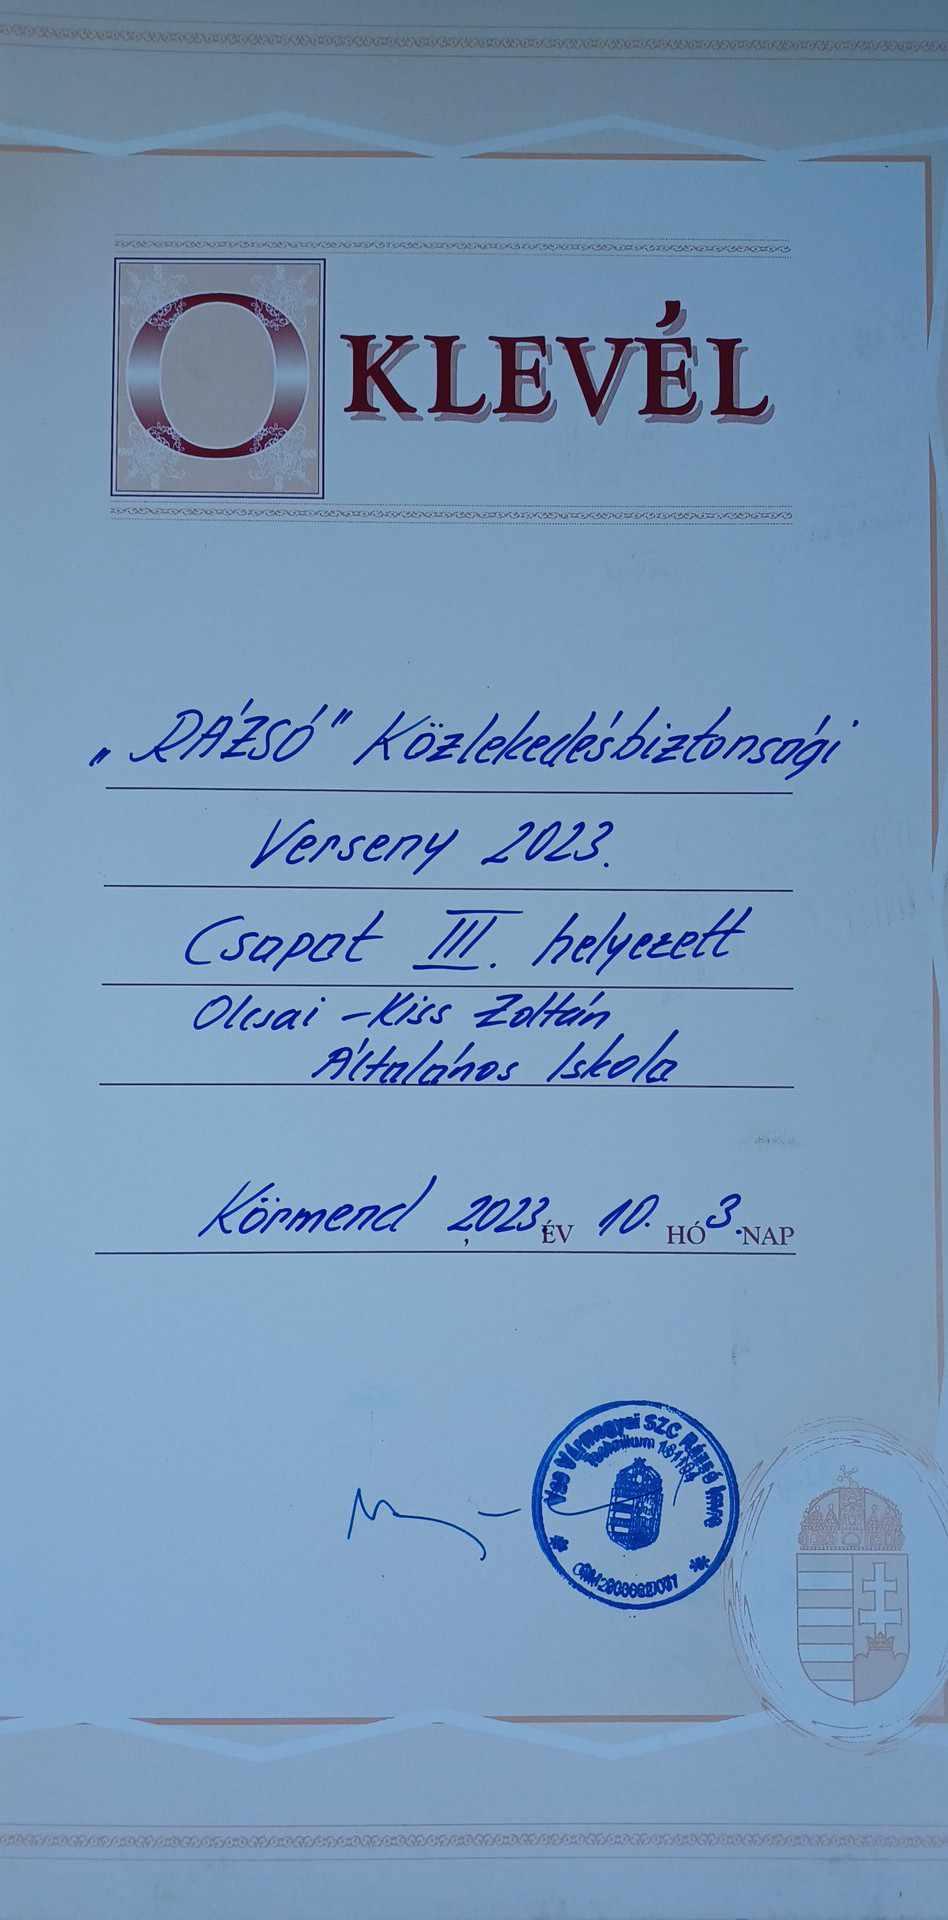 OKLEVÉL
„RÁZSÓ” Közlekedésbiztonsági
Verseny 2023.
Csapat III. helyezett
Olcsai-Kiss Zoltán
Általános Iskola
Körmend, 2023. ÉV 10. HÓ 3. NAP
Vas Vármegyei SZC Rázsó Imre
Technikum